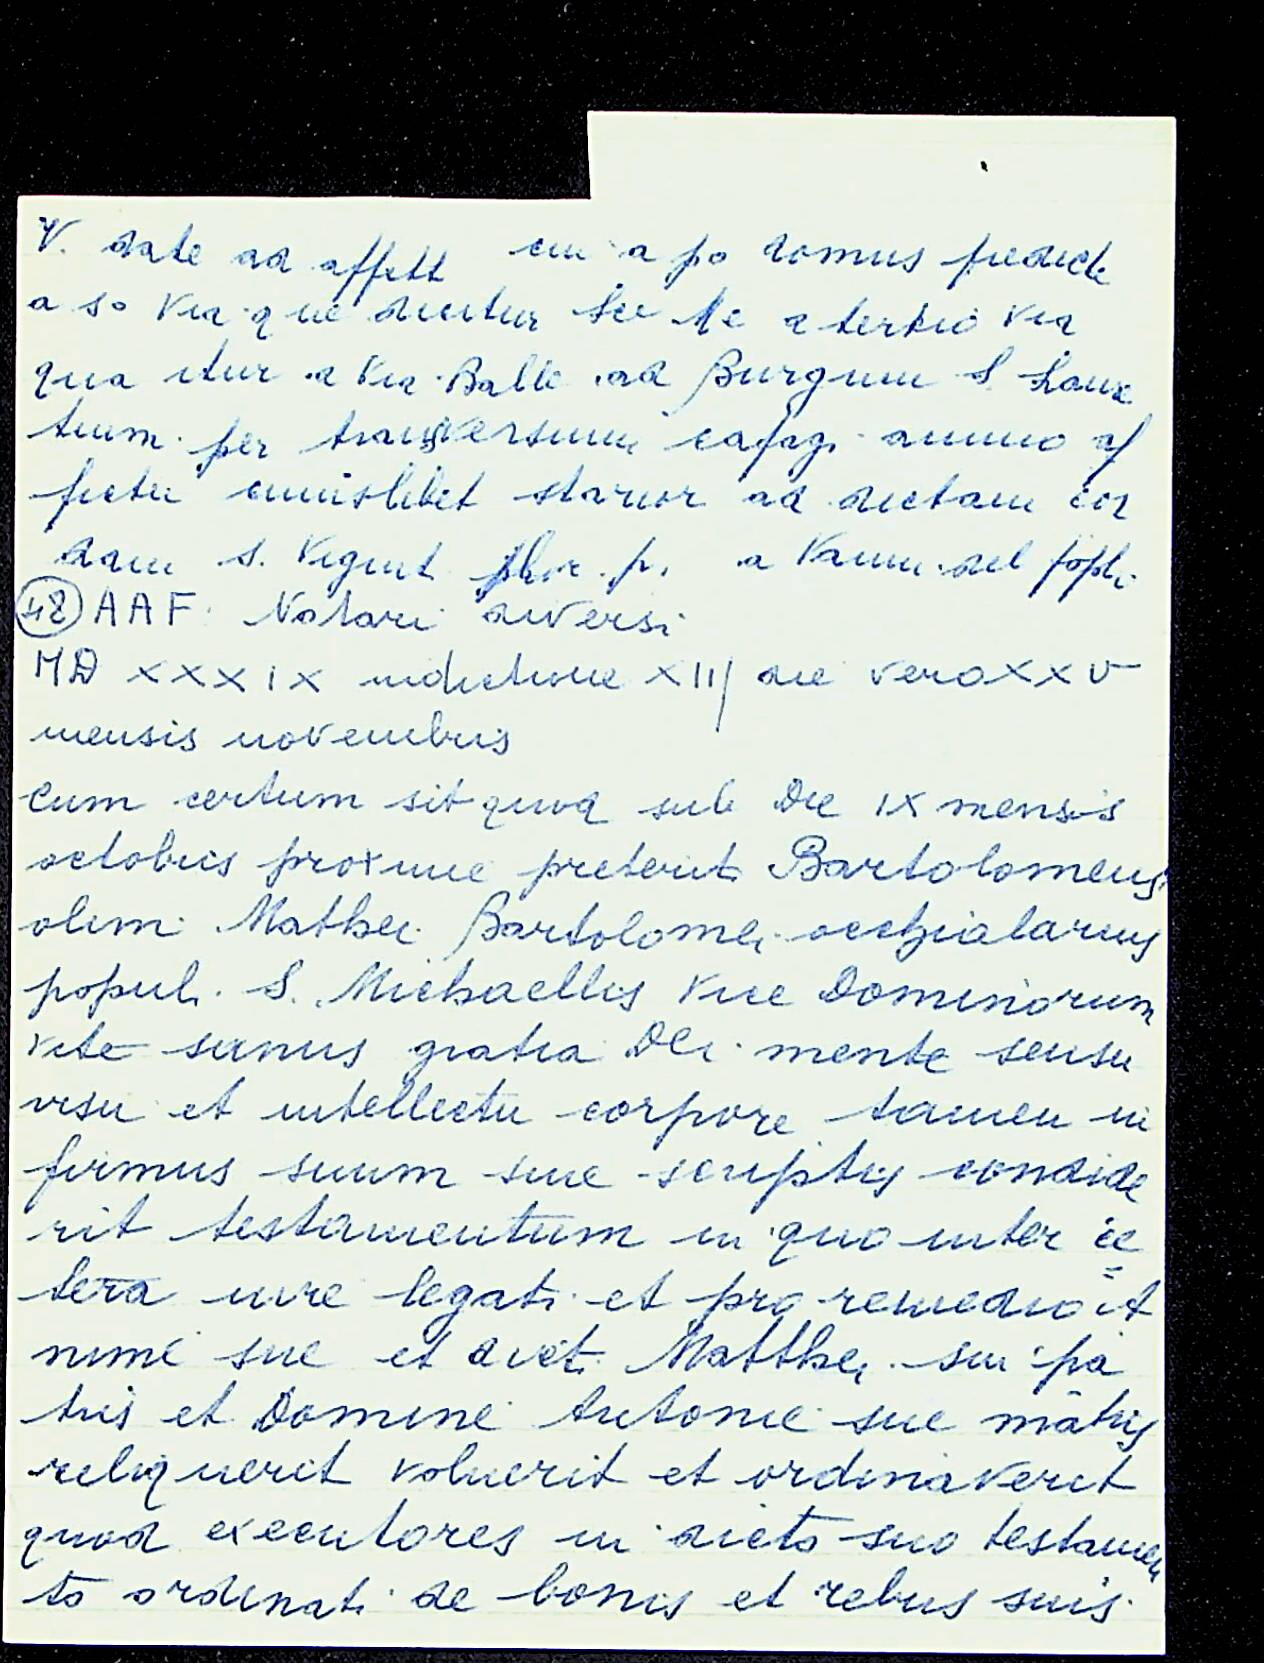 V. date ad affitt cui a po domus predicte
a so via que dicitur a tertio via
qua itur a via Balle ad Burgum S Lauren
tium per transversum cafagi animo af
fictu cuiuslibet starior ad dictam cor
dam s. Vigint flor. p. a Vanni del popl.
48 AAF Notari diversi
MD XXXIX indictione XIII die vero XXV
mensis novembris
cum certum sit quod sub Die IX mensis
octobris proxime preterit Bartolomeus
olim Mathei Bartolomei occhialarius
populi S. Michaellis Vice Dominorum
vite sanus gratia Dei mente sensu
visu et intellectu corpore tamen in
firmus suum sine scriptis condide
rit testamentum in quo inter ce
tera iure legati et pro remedio A
nime sue et dict. Matthei sui pa
tris et Domine Antonie sue matris
reliquerit voluerit et ordinaverit
quod executores in dicto suo testamen
to ordinati de bonis et rebus suis